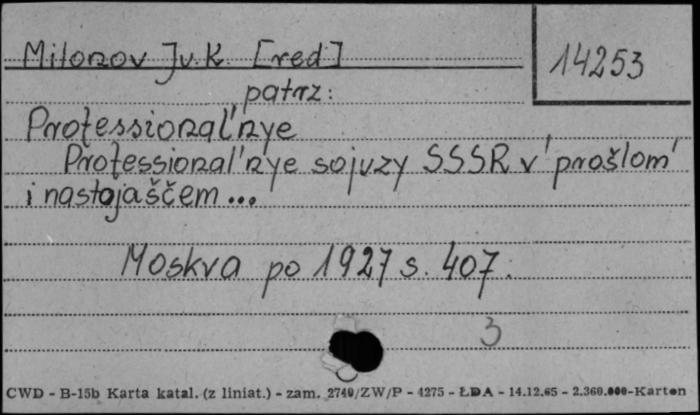 Milonov Ju.K. [red]
14253
patrz:
Professional'nye
Professional'nye sojuzy SSSR v prošlom
i nastojaščem...
Moskva po 1927 s. 407.
3
CWD - B-15b Karta katal. (z liniat.) - zam. 2740/ZW/P - 4275 - ŁDA - 14.12.65 - 2.360.000-Karton